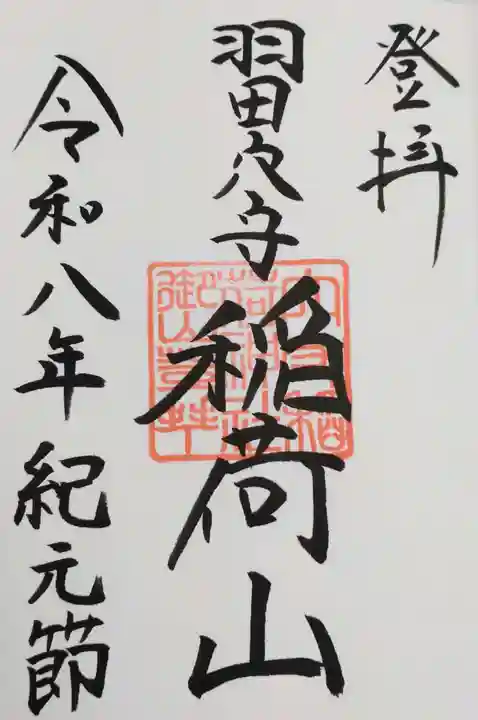 登拝
羽田穴守稲荷山
令和八年紀元節